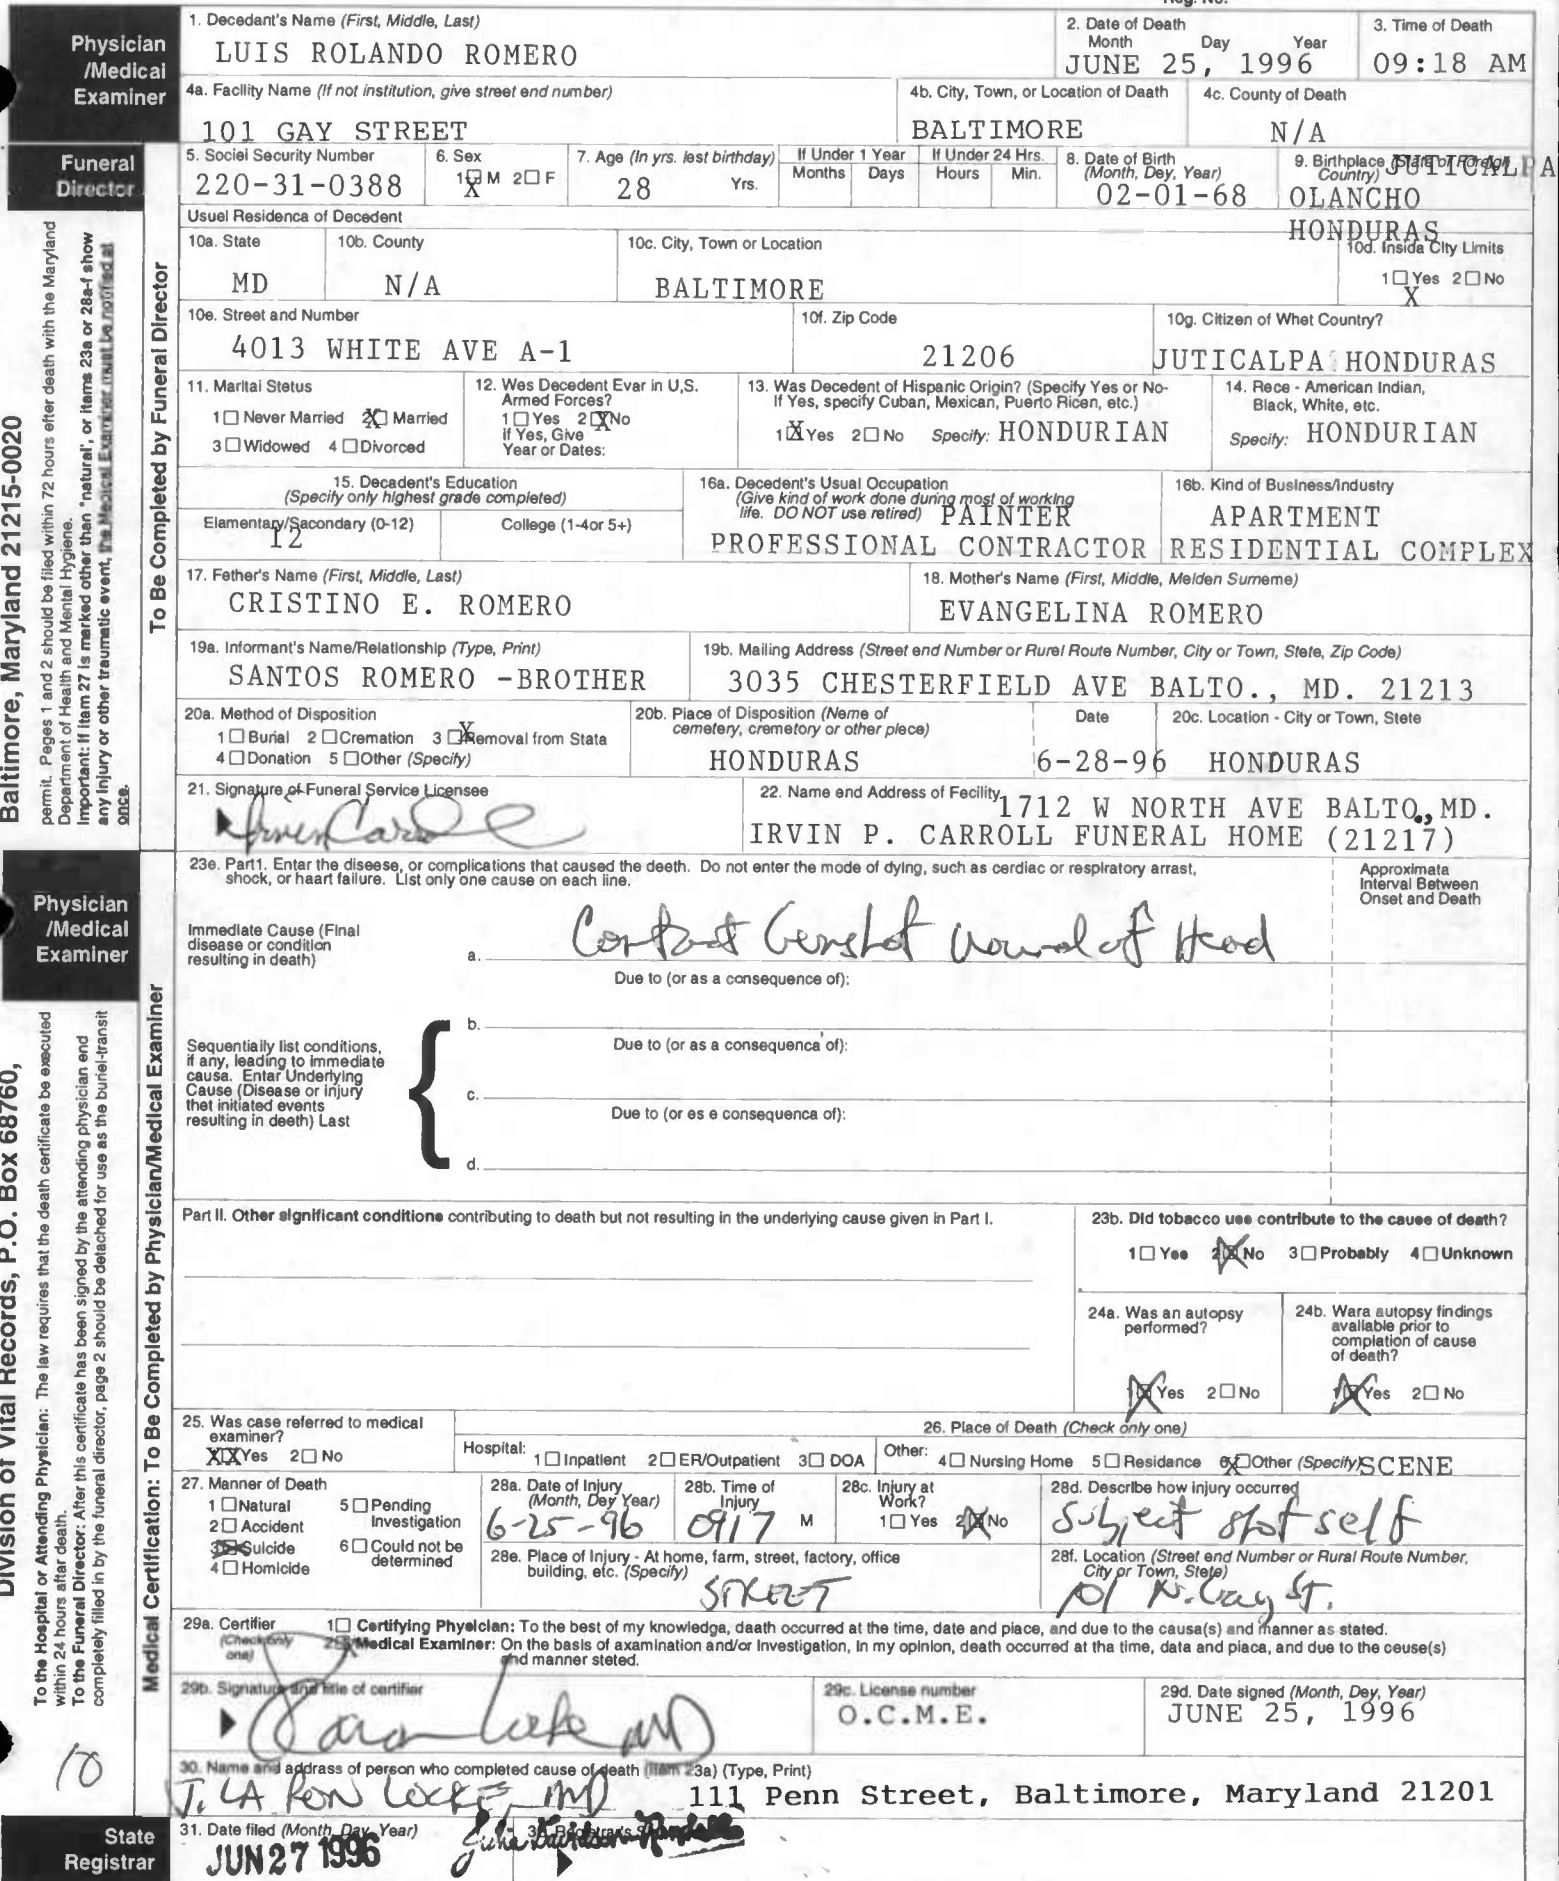 1. Decedant's Name (First, Middle, Last)
LUIS ROLANDO ROMERO
2. Date of Death
Month Day Year
JUNE 25, 1996
3. Time of Death
09:18 AM
Physician
/Medical
Examiner
4a. Facility Name (If not institution, give street end number)
101 GAY STREET
4b. City, Town, or Location of Daath
BALTIMORE
4c. County of Death
N/A
Funeral
Director
5. Sociel Security Number
220-31-0388
6. Sex
1☒ M 2☐ F
7. Age (In yrs. lest birthday)
28 Yrs.
If Under 1 Year
Months Days
If Under 24 Hrs.
Hours Min.
8. Date of Birth
(Month, Dey, Year)
02-01-68
9. Birthplace (State or Foreign
Country) JUTICALPA
OLANCHO
HONDURAS
Usuel Residenca of Decedent
10a. State
MD
10b. County
N/A
10c. City, Town or Location
BALTIMORE
10d. Insida City Limits
1☐ Yes 2☐ No
X
10e. Street and Number
4013 WHITE AVE A-1
10f. Zip Code
21206
10g. Citizen of Whet Country?
JUTICALPA HONDURAS
11. Marital Stetus
1☐ Never Married 2☒ Married
3☐ Widowed 4☐ Divorced
12. Wes Decedent Evar in U,S.
Armed Forces?
1☐ Yes 2☒ No
If Yes, Give
Year or Dates:
13. Was Decedent of Hispanic Origin? (Specify Yes or No-
If Yes, specify Cuban, Mexican, Puerto Ricen, etc.)
1☒ Yes 2☐ No Specify: HONDURIAN
14. Rece - American Indian,
Black, White, etc.
Specify: HONDURIAN
15. Decadent's Education
(Specify only highest grade completed)
Elamentary/Sacondary (0-12)
12
College (1-4or 5+)
16a. Decedent's Usual Occupation
(Give kind of work done during most of working
life. DO NOT use retired) PAINTER
PROFESSIONAL CONTRACTOR
16b. Kind of Business/Industry
APARTMENT
RESIDENTIAL COMPLEX
17. Father's Name (First, Middle, Last)
CRISTINO E. ROMERO
18. Mother's Name (First, Middle, Melden Surneme)
EVANGELINA ROMERO
19a. Informant's Name/Relationship (Type, Print)
SANTOS ROMERO -BROTHER
19b. Mailing Address (Street end Number or Rurel Route Number, City or Town, Stete, Zip Code)
3035 CHESTERFIELD AVE BALTO., MD. 21213
20a. Method of Disposition
1☐ Burial 2☐ Cremation 3☒ Removal from Stata
4☐ Donation 5☐ Other (Specify)
20b. Place of Disposition (Neme of
cemetery, cremetory or other plece)
HONDURAS
Date
6-28-96
20c. Location - City or Town, Stete
HONDURAS
21. Signature of Funeral Service Licensee
22. Name end Address of Fecility
1712 W NORTH AVE BALTO., MD.
IRVIN P. CARROLL FUNERAL HOME (21217)
To Be Completed by Funeral Director
Baltimore, Maryland 21215-0020
permit. Peges 1 and 2 should be filed within 72 hours efter death with the Maryland
Department of Health and Mental Hygiene.
Important: If item 27 is merked other than "natural", or items 23a or 28a-f show
any Injury or other traumatic event, the Medical Examiner must be notified at
once.
Physician
/Medical
Examiner
23e. Part1. Entar the disease, or complications that caused the deeth. Do not enter the mode of dying, such as cerdiac or respiratory arrast,
shock, or haart failure. List only one cause on each line.
Approximata
Interval Between
Onset and Death
Immediate Cause (Final
disease or condition
resulting in death)
a. Contact Gunshot Wound of Head
Due to (or as a consequence of):
b.
Due to (or as a consequenca of):
Sequentially list conditions,
if any, leading to immediate
causa. Entar Underlying
Cause (Disease or injury
thet initiated events
resulting in deeth) Last
c.
Due to (or es e consequenca of):
d.
Part II. Other significant conditions contributing to death but not resulting in the underlying cause given in Part I.
23b. Did tobacco use contribute to the cause of death?
1☐ Yes 2☒ No 3☐ Probably 4☐ Unknown
24a. Was an autopsy
performed?
1☒ Yes 2☐ No
24b. Wara autopsy findings
available prior to
complation of cause
of death?
1☒ Yes 2☐ No
25. Was case referred to medical
examiner?
XXYes 2☐ No
26. Place of Death (Check only one)
Hospital: 1☐ Inpatient 2☐ ER/Outpatient 3☐ DOA
Other: 4☐ Nursing Home 5☐ Residance 6☒ Other (Specify) SCENE
27. Manner of Death
1☐ Natural
2☐ Accident
3☒ Suicide
4☐ Homicide
5☐ Pending
Investigation
6☐ Could not be
determined
28a. Date of Injury
(Month, Dey Year)
6-25-96
28b. Time of
Injury
0917 M
28c. Injury at
Work?
1☐ Yes 2☒ No
28d. Describe how injury occurred
Subject shot self
28e. Place of Injury - At home, farm, street, factory, office
building, etc. (Specify)
STREET
28f. Location (Street end Number or Rural Route Number,
City or Town, Stete)
101 N. Gay St.
29a. Certifier
(Check only
one)
1☐ Certifying Physician: To the best of my knowledga, daath occurred at the time, date and place, and due to the causa(s) and manner as stated.
2☒ Medical Examiner: On the basis of axamination and/or Investigation, in my opinion, death occurred at tha time, data and placa, and due to the ceuse(s)
and manner steted.
29b. Signature and title of certifier
29c. License number
O.C.M.E.
29d. Date signed (Month, Dey, Year)
JUNE 25, 1996
30. Name and address of person who completed cause of death (Item 23a) (Type, Print)
J. LA RON LOCKE, MD 111 Penn Street, Baltimore, Maryland 21201
Medical Certification: To Be Completed by Physician/Medical Examiner
Division of Vital Records, P.O. Box 68760,
To the Hospital or Attending Physician: The law requires that the death certificate be executed
within 24 hours after death.
To the Funeral Director: After this certificate has been signed by the attending physician end
completely filled in by the funeral director, page 2 should be detached for use as the buriel-transit
10
State
Registrar
31. Date filed (Month, Day, Year)
JUN 27 1996